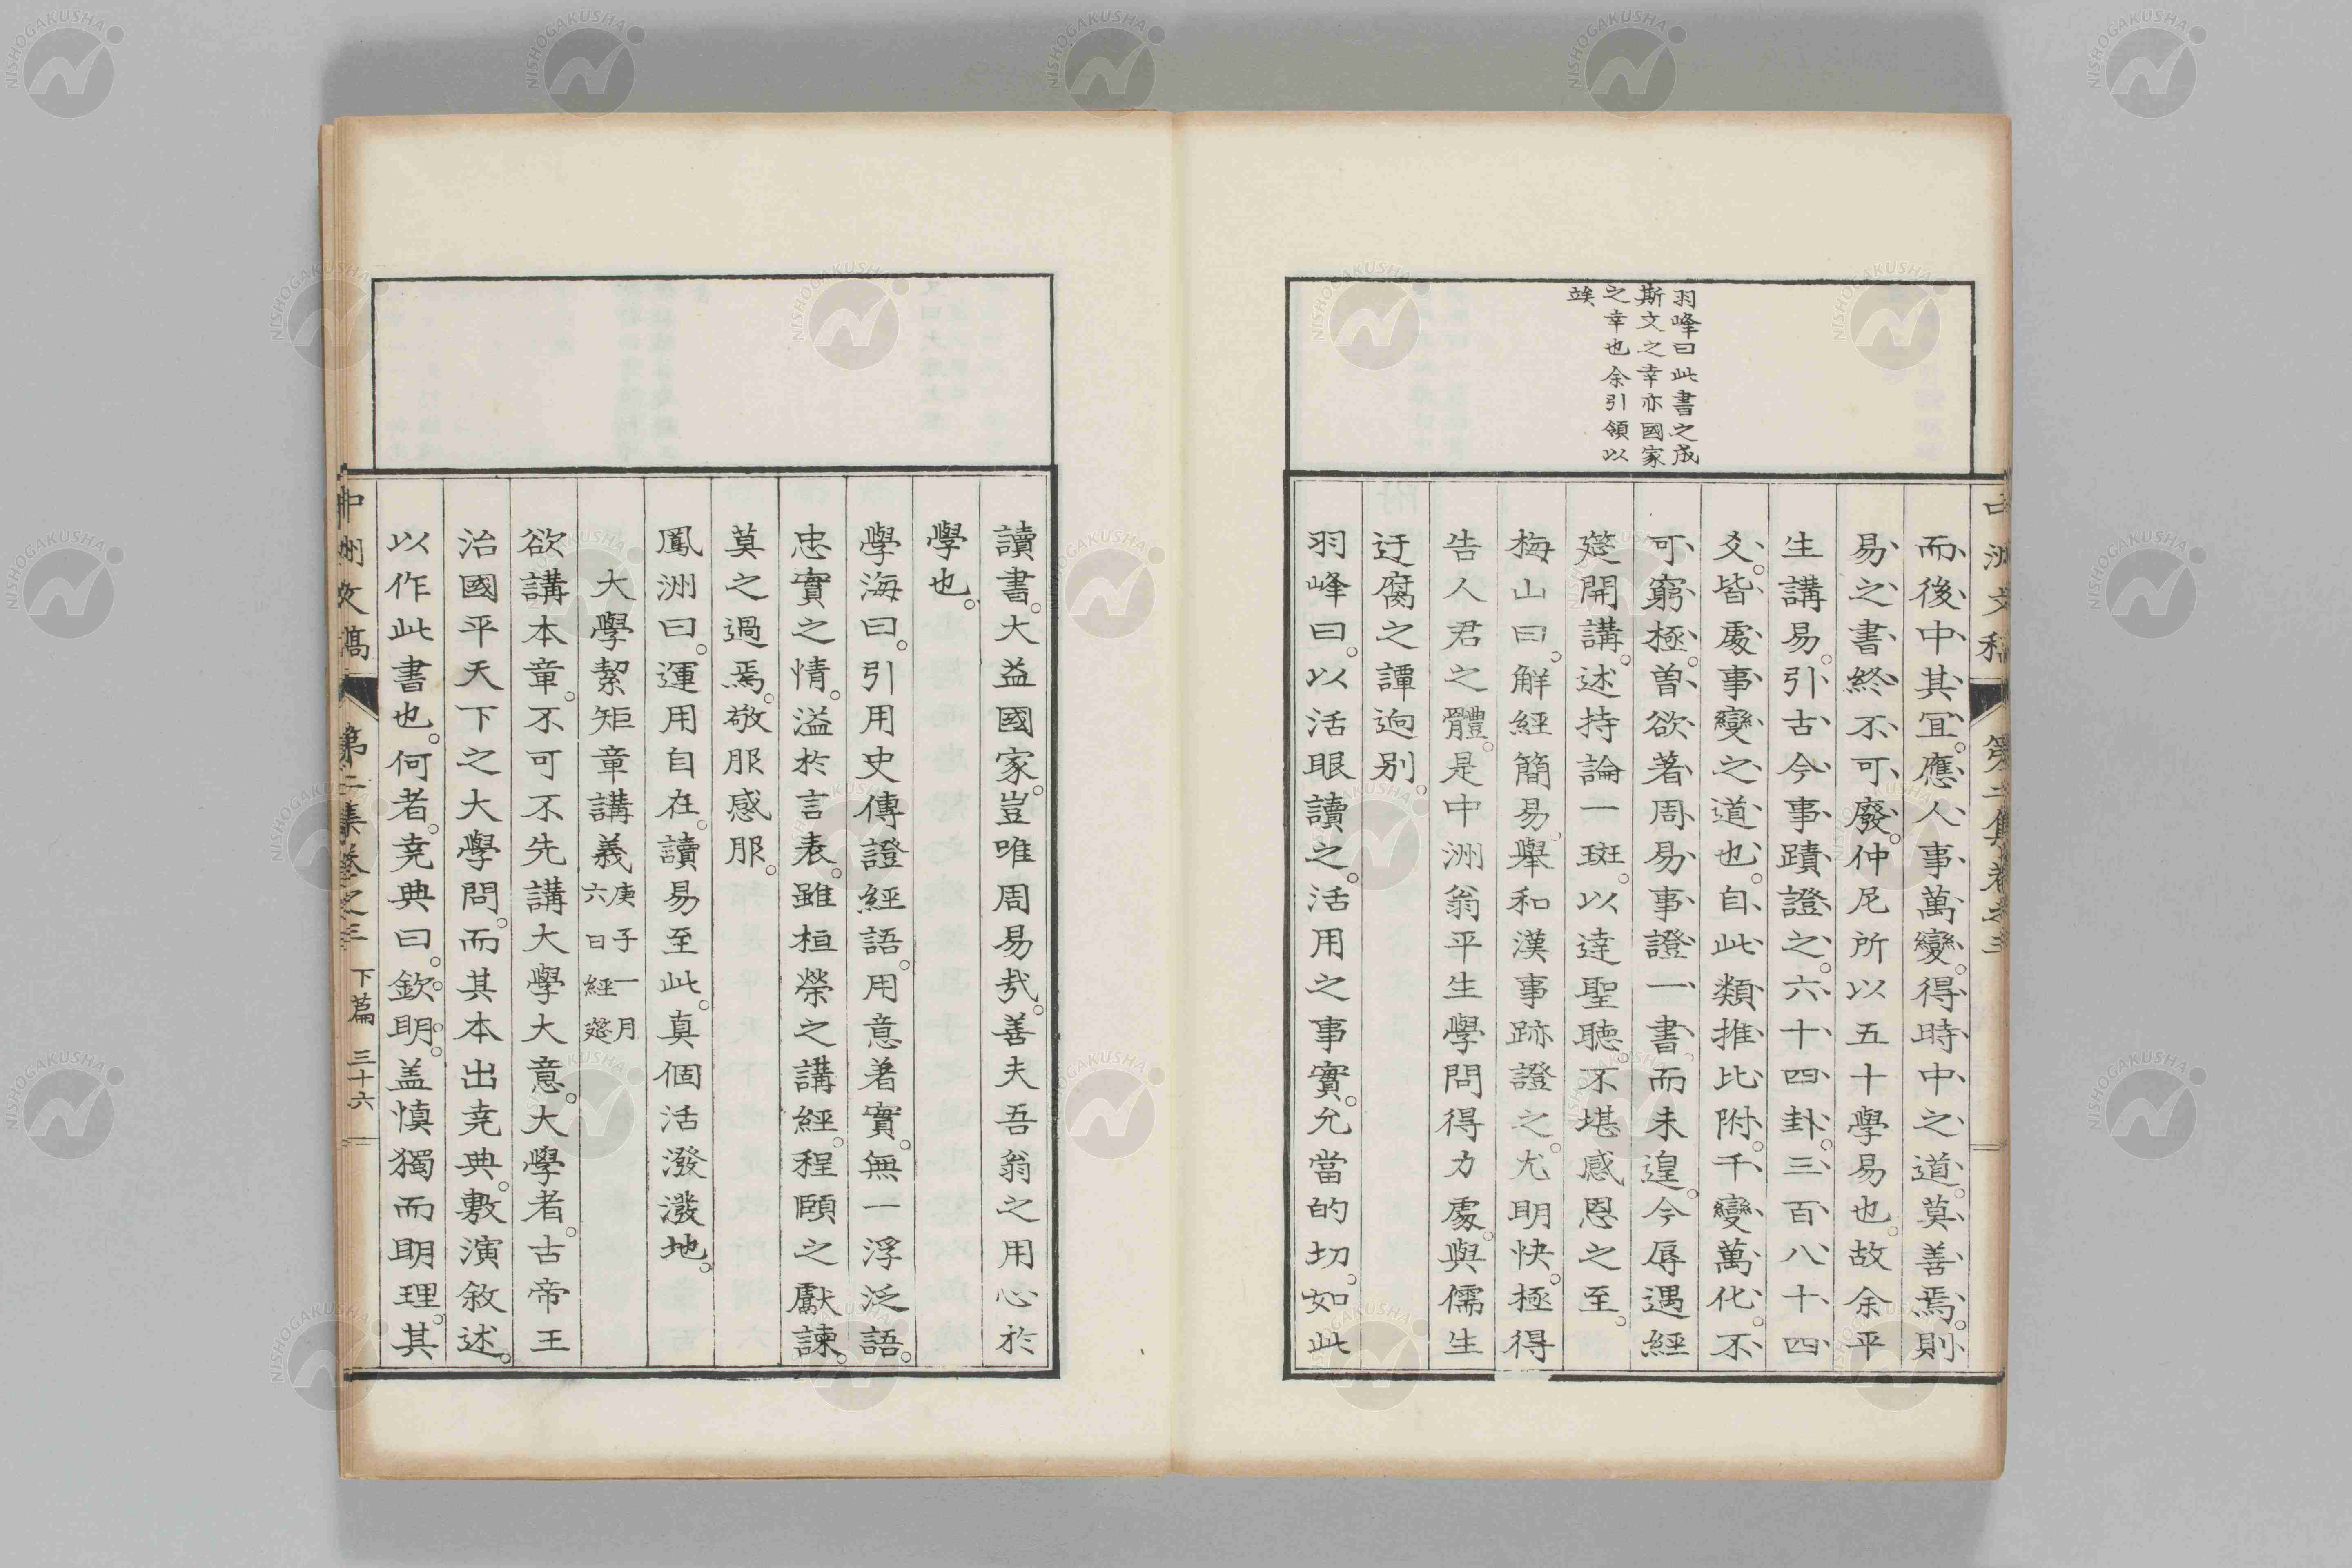 羽峰曰此書之成
斯文之幸亦國家
之幸也余引領以
竢
而後中其宜。應人事萬變。得時中之道。莫善焉。則
易之書終不可廢。仲尼所以五十學易也。故余平
生講易。引古今事蹟證之。六十四卦。三百八十四
爻。皆處事變之道也。自此類推比附。千變萬化。不
可窮極。曾欲著周易事證一書。而未遑。今辱遇經
筵開講。述持論一斑。以達聖聽。不堪感恩之至。
梅山曰。解經簡易。舉和漢事跡證之。尤明快。極得
告人君之體。是中洲翁平生學問得力處。與儒生
迂腐之譚逈別。
羽峰曰。以活眼讀之。活用之事實。允當的切。如此
讀書。大益國家。豈唯周易哉。善夫吾翁之用心於
學也。
學海曰。引用史傳證經語。用意著實。無一浮泛語。
忠實之情。溢於言表。雖桓榮之講經。程頤之獻諫。
莫之過焉。敬服感服。
鳳洲曰。運用自在。讀易至此。真個活潑潑地。
大學絜矩章講義庚子一月六日經筵
欲講本章。不可不先講大學大意。大學者。古帝王
治國平天下之大學問。而其本出堯典。敷演敘述。
以作此書也。何者。堯典曰。欽。明。盖慎獨而明理。其
中洲文稿 第二集卷之三 下篇 三十六